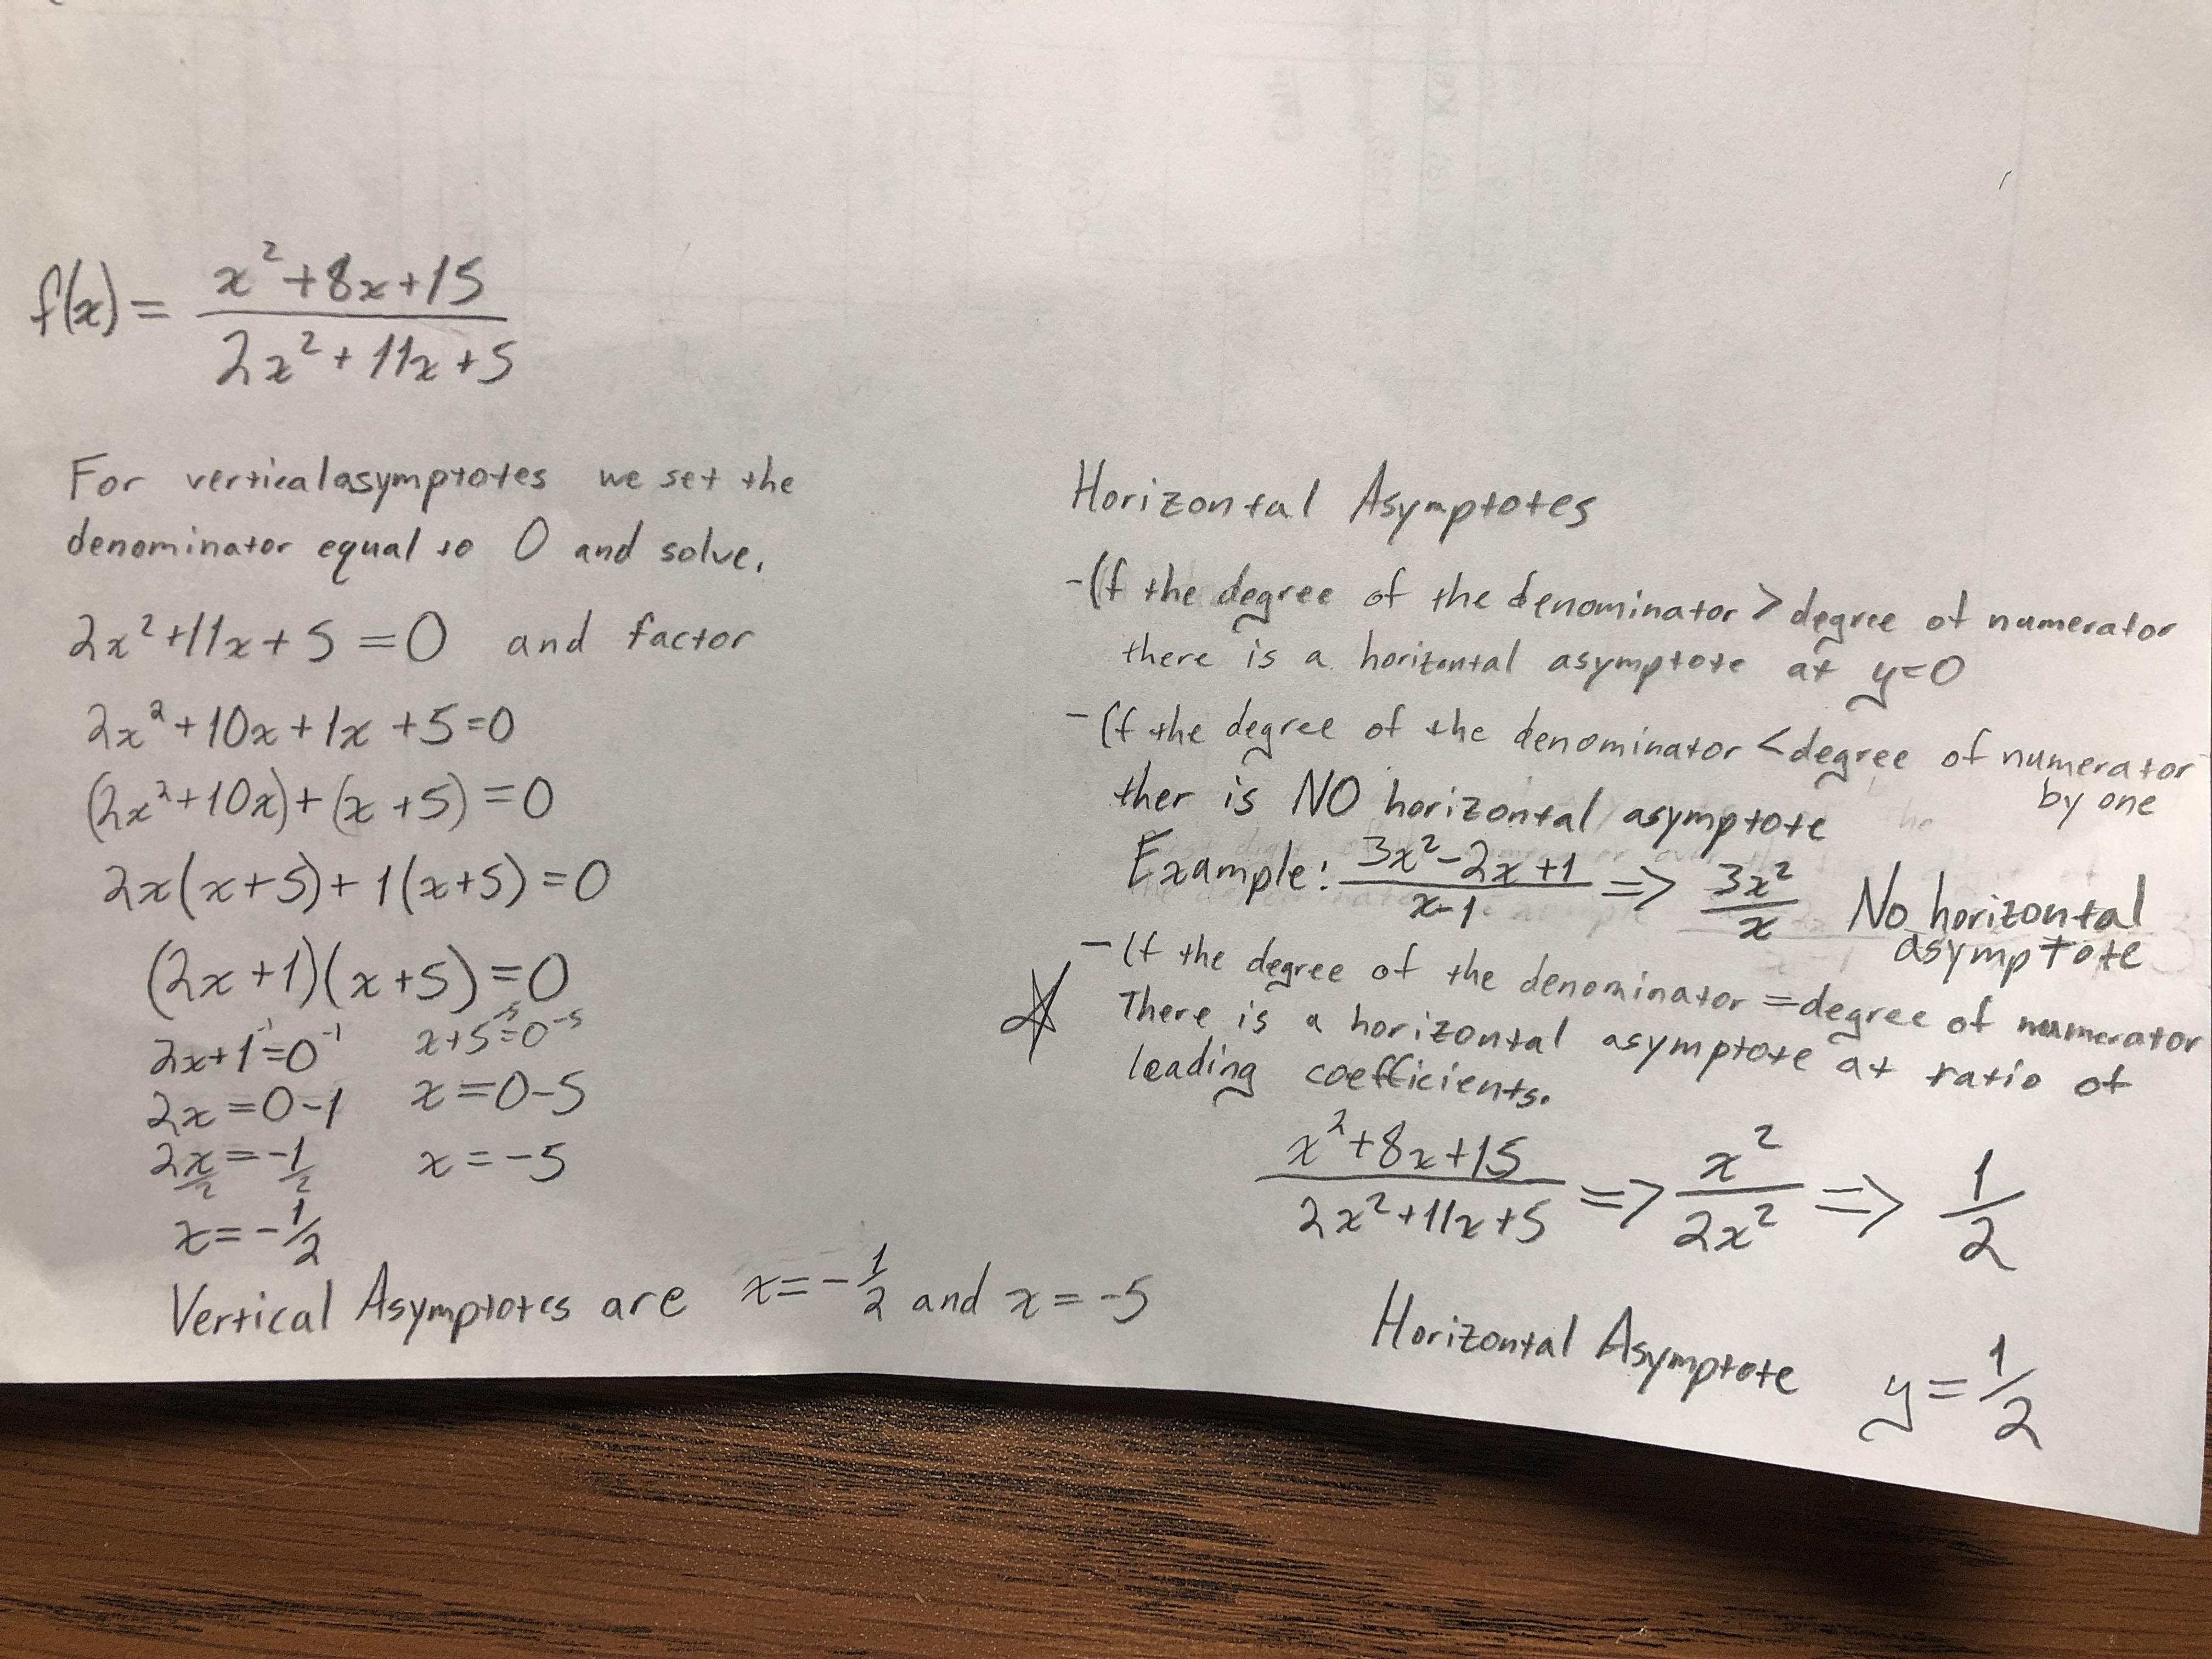 f(x) = x²+8x+15 / 2x²+11x+5
For vertical asymptotes we set the
denominator equal to 0 and solve.
2x²+11x+5=0 and factor
2x²+10x+1x+5=0
(2x²+10x)+(x+5)=0
2x(x+5)+1(x+5)=0
(2x+1)(x+5)=0
2x+1⁻¹=0⁻¹ x+5⁻⁵=0⁻⁵
2x=0-1 x=0-5
2x/2=-1/2 x=-5
x=-1/2
Vertical Asymptotes are x=-1/2 and x=-5
Horizontal Asymptotes
-If the degree of the denominator > degree of numerator
there is a horizontal asymptote at y=0
-If the degree of the denominator < degree of numerator
by one
ther is NO horizontal asymptote
Example: 3x²-2x+1 / x-1 => 3x²/x No horizontal
asymptote
-If the degree of the denominator = degree of numerator
There is a horizontal asymptote at ratio of
leading coefficients.
x²+8x+15 / 2x²+11x+5 => x²/2x² => 1/2
Horizontal Asymptote y=1/2